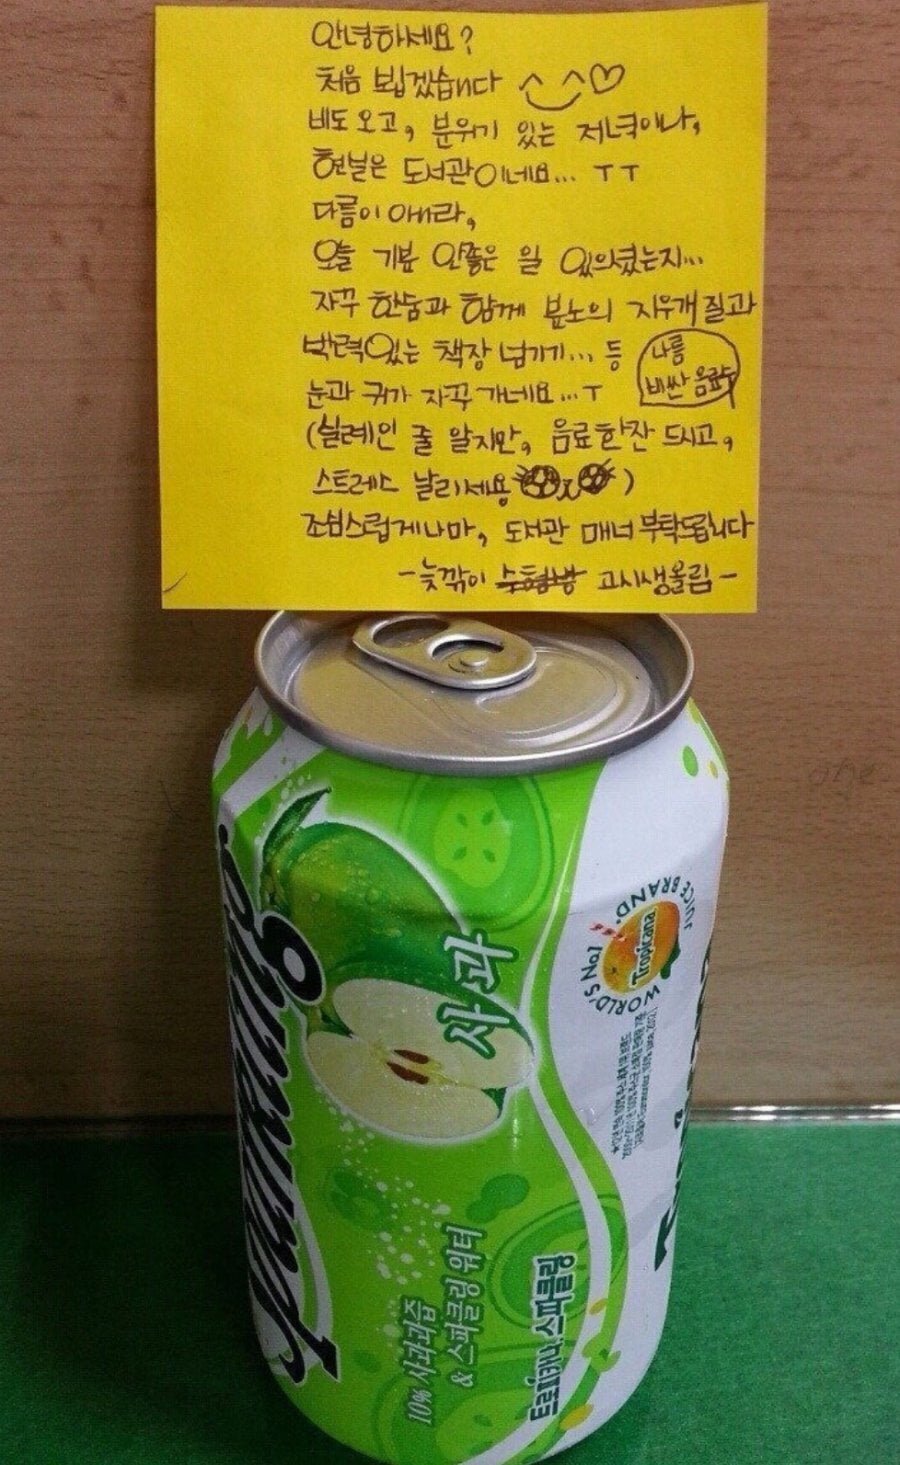 안녕하세요?
처음 뵙겠습니다 ^^♡
비도 오고, 분위기 있는 저녁이나,
현실은 도서관이네요... ㅜㅜ
다름이 아니라,
오늘 기분 안좋은 일 있으셨는지...
자꾸 한숨과 함께 분노의 지우개질과
박력있는 책장 넘기기... 등
나름
비싼 음료수
눈과 귀가 자꾸 가네요...ㅜ
(실례인 줄 알지만, 음료 한잔 드시고,
스트레스 날리세요 )
조심스럽게나마, 도서관 매너 부탁드립니다
-늦깎이 고시생올림-
Sparkling
사과
10% 사과과즙
& 스파클링 워터
트로피카나 스파클링
WORLD'S No.1 JUICE BRAND.
Tropicana